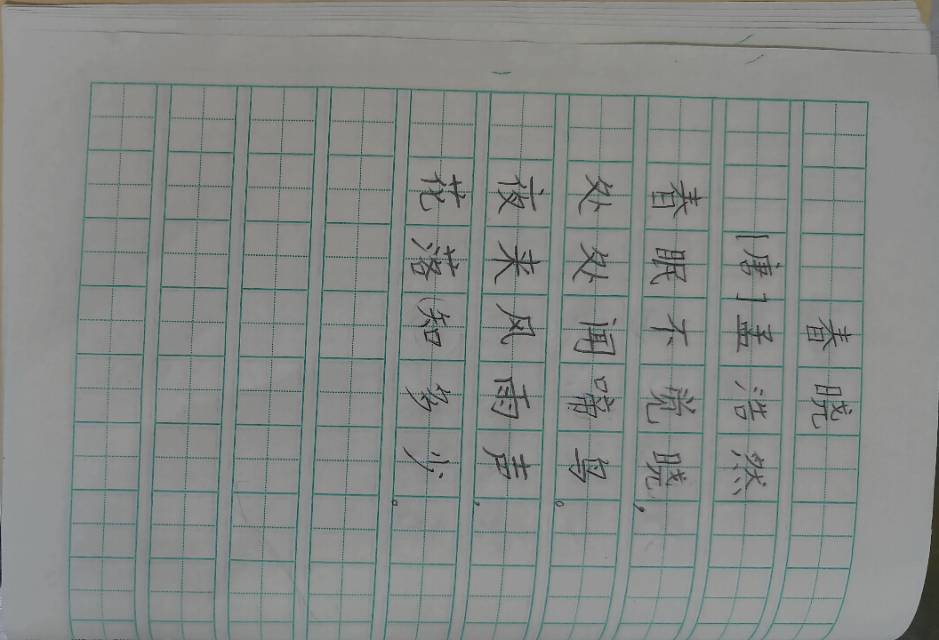 春晓
[唐]孟浩然
春眠不觉晓,
处处闻啼鸟。
夜来风雨声,
花落知多少。